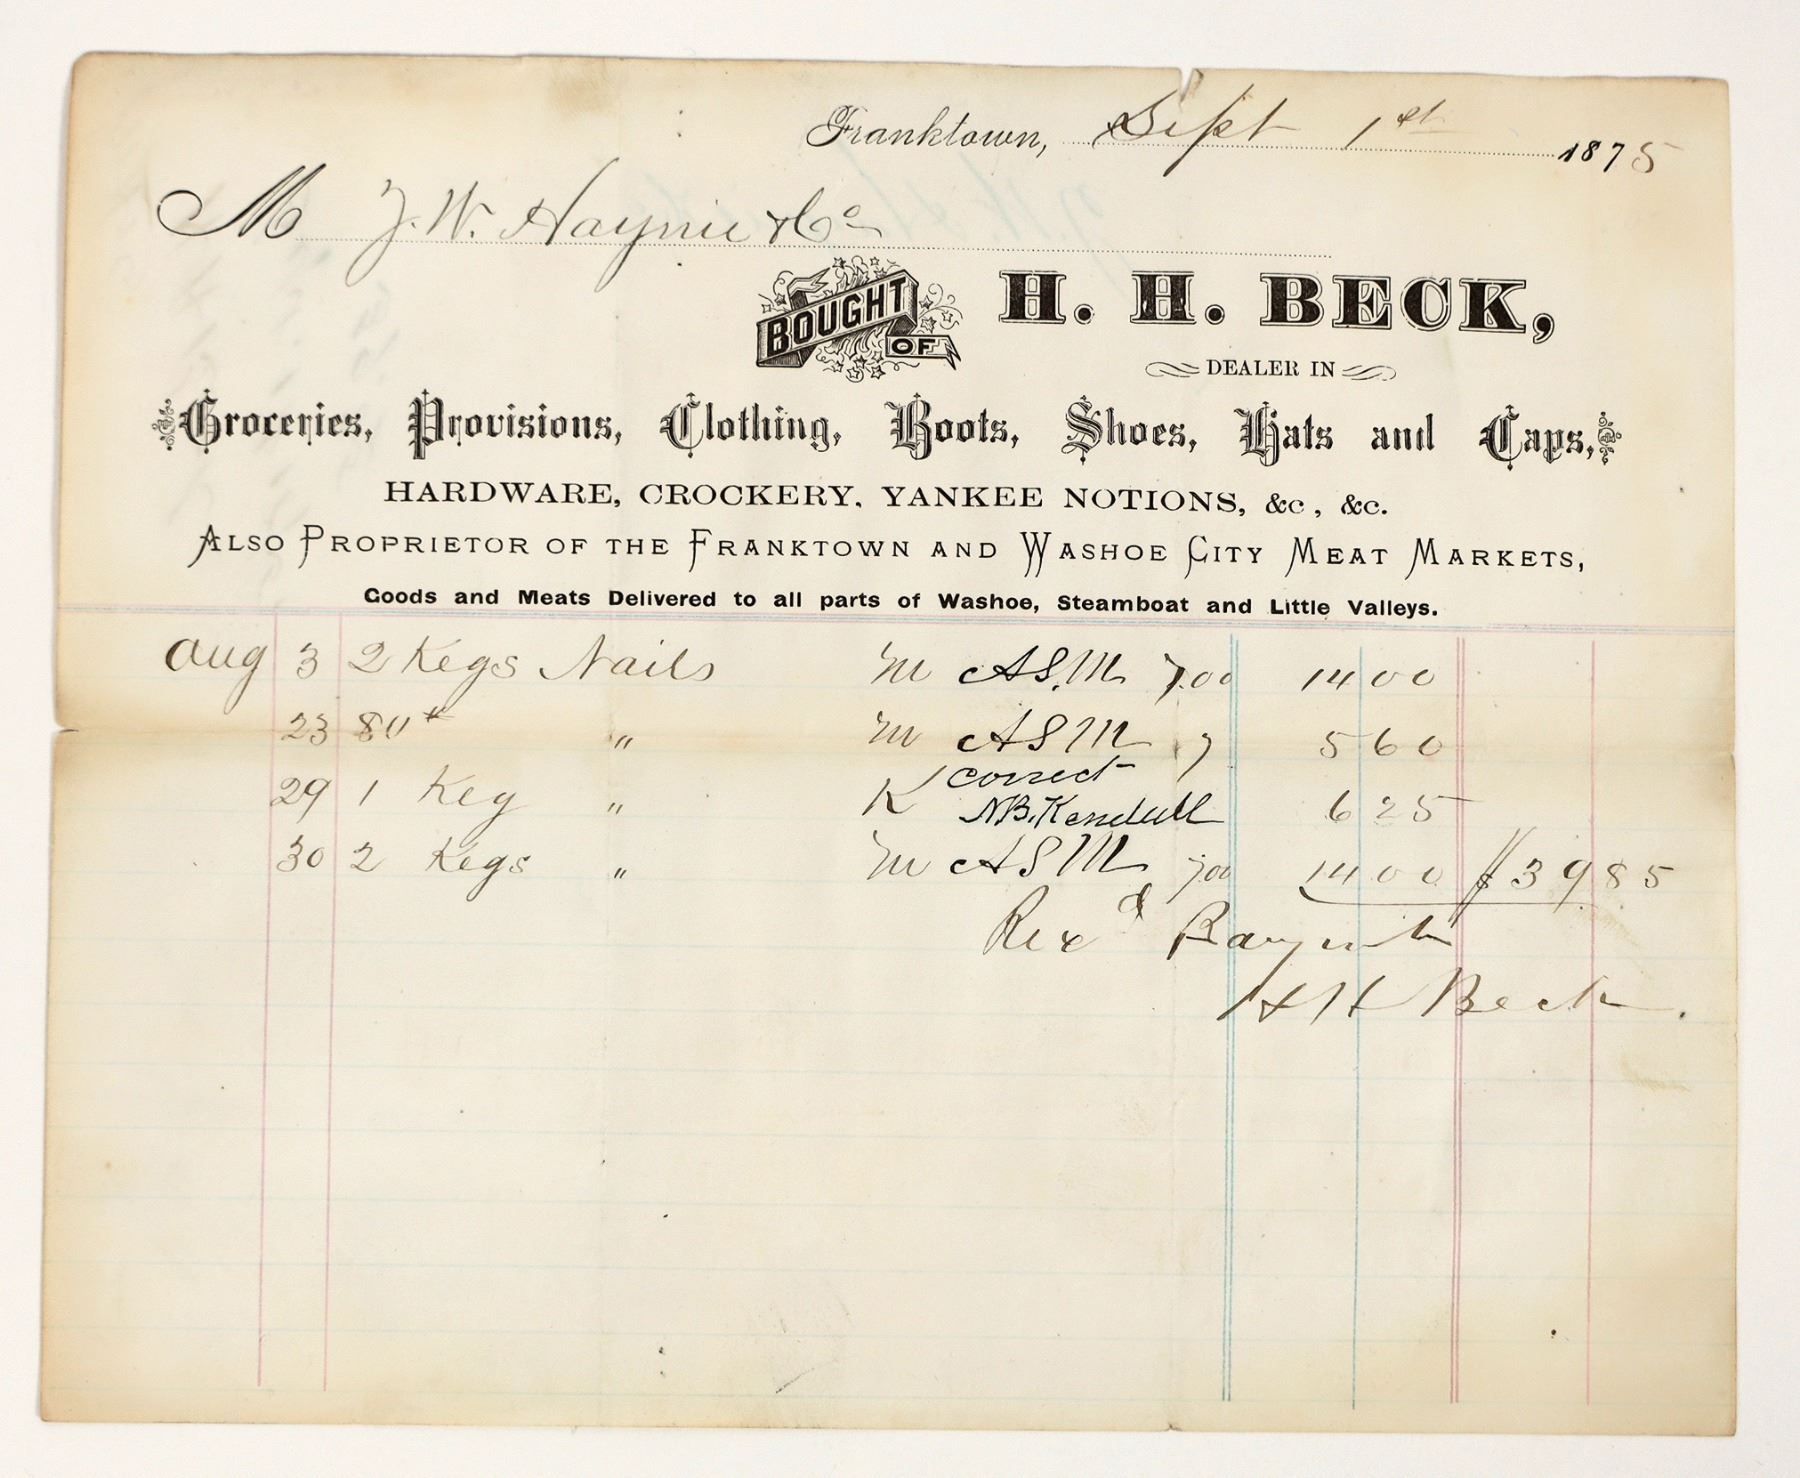 Franktown, Sept 1st 1875
M J. W. Haynie & Co
BOUGHT OF H. H. BECK,
DEALER IN
Groceries, Provisions, Clothing, Boots, Shoes, Hats and Caps,
HARDWARE, CROCKERY, YANKEE NOTIONS, &c, &c.
ALSO PROPRIETOR OF THE FRANKTOWN AND WASHOE CITY MEAT MARKETS,
Goods and Meats Delivered to all parts of Washoe, Steamboat and Little Valleys.
Aug 3 2 Kegs Nails M A.S.M. 7.00 14 00
23 80# " M A S M 7 5 60
29 1 Keg " K correct N.B. Kendall 6 25
30 2 Kegs " M A S M 7 00 14 00 $39 85
Rec'd Payment
H H Beck.